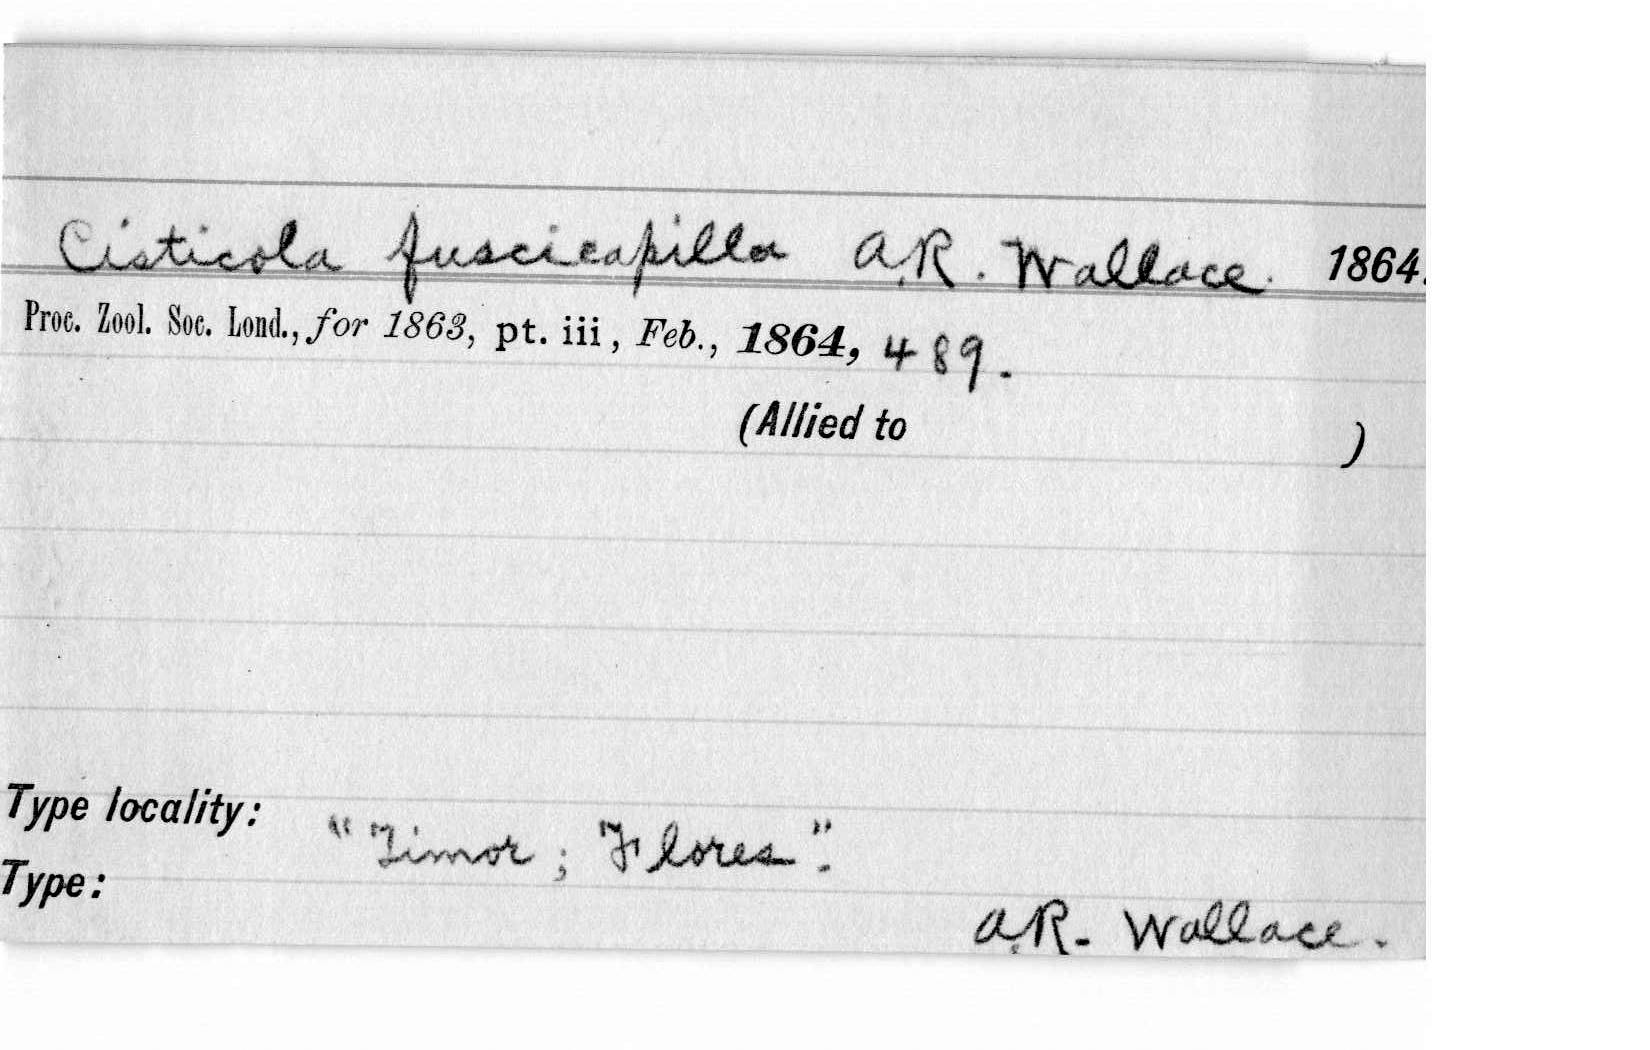 Cisticola fuscicapilla A.R. Wallace. 1864.
Proc. Zool. Soc. Lond., for 1863, pt. iii, Feb., 1864, 489.
(Allied to )
Type locality: "Timor; Flores".
Type:
A.R. Wallace.